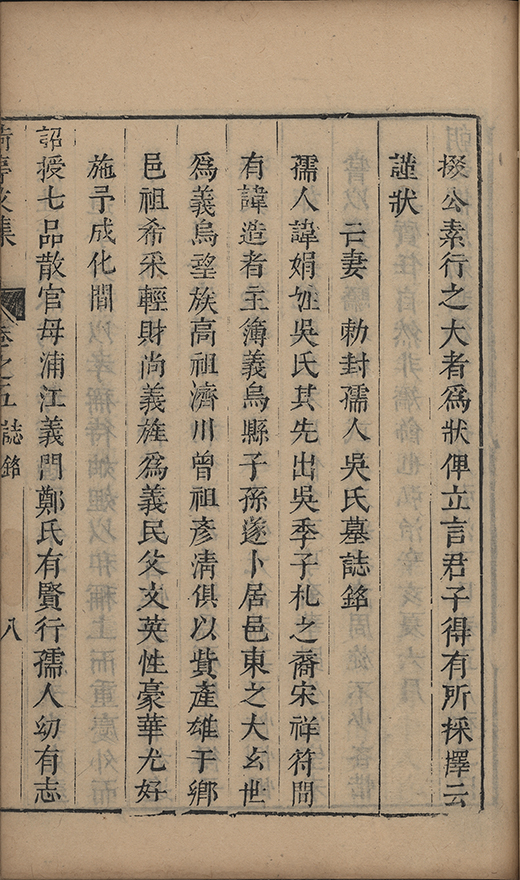 掇公素行之大者爲狀俾立言君子得有所採擇云
謹狀
亡妻 勅封孺人吳氏墓誌銘
孺人諱娟姓吳氏其先出吳季子札之裔宋祥符間
有諱造者主簿義烏縣子孫遂卜居邑東之大玄世
爲義烏望族高祖濟川曾祖彥清俱以貲產雄于鄉
邑祖希采輕財尚義旌爲義民父文英性豪華尤好
施予成化間
詔授七品散官母浦江義門鄭氏有賢行孺人幼有志
集 卷之五 誌銘 八